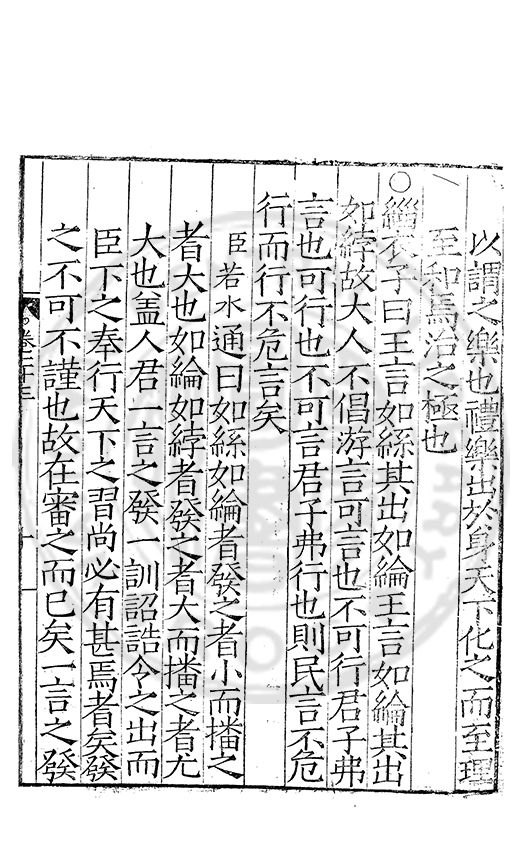 以謂之樂也禮樂出於身天下化之而至理
至和焉治之極也
○緇衣子曰王言如絲其出如綸王言如綸其出
如綍故大人不倡游言可言也不可行君子弗
言也可行也不可言君子弗行也則民言不危
行而行不危言矣
臣若水通曰如絲如綸者發之者小而播之
者大也如綸如綍者發之者大而播之者尤
大也盖人君一言之發一訓詔誥令之出而
臣下之奉行天下之習尚必有甚焉者矣發
之不可不謹也故在審之而已矣一言之發